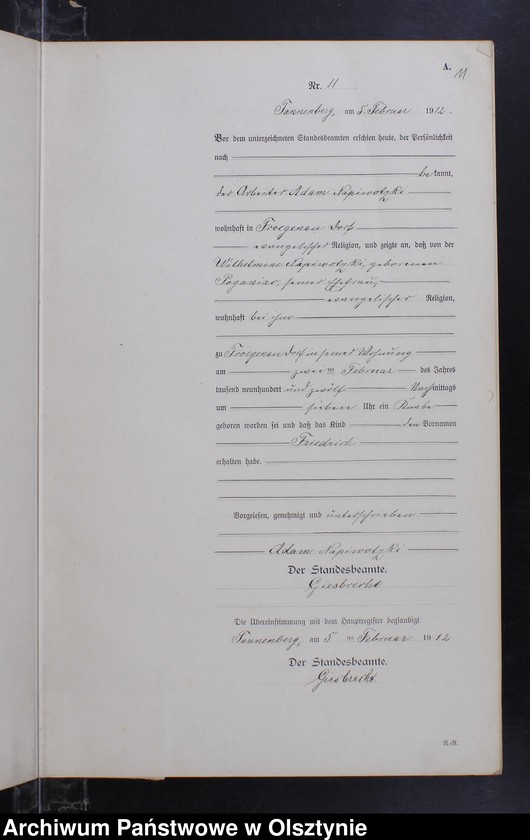 A.
11
Nr. 11
Tannenberg, am 5. Februar 1912.
Vor dem unterzeichneten Standesbeamten erschien heute, der Persönlichkeit
nach
bekannt,
der Arbeiter Adam Napiwotzki
wohnhaft in Froegenau Dorf
evangelischer Religion, und zeigte an, daß von der
Wilhelmine Napiwotzki, geborenen
Poganiar, seiner Ehefrau,
evangelischer Religion,
wohnhaft bei ihm
zu Froegenau Dorf in seiner Wohnung
am zwei ten Februar des Jahres
tausend neunhundert und zwölf Nachmittags
um sieben Uhr ein Knabe
geboren worden sei und daß das Kind den Vornamen
Friedrich
erhalten habe.
Vorgelesen, genehmigt und unterschrieben
Adam Napiwotzki
Der Standesbeamte.
Giesbrecht
Die Übereinstimmung mit dem Hauptregister beglaubigt
Tannenberg, am 5 ten Februar 1912
Der Standesbeamte.
Giesbrecht
R.-R.
Archiwum Państwowe w Olsztynie